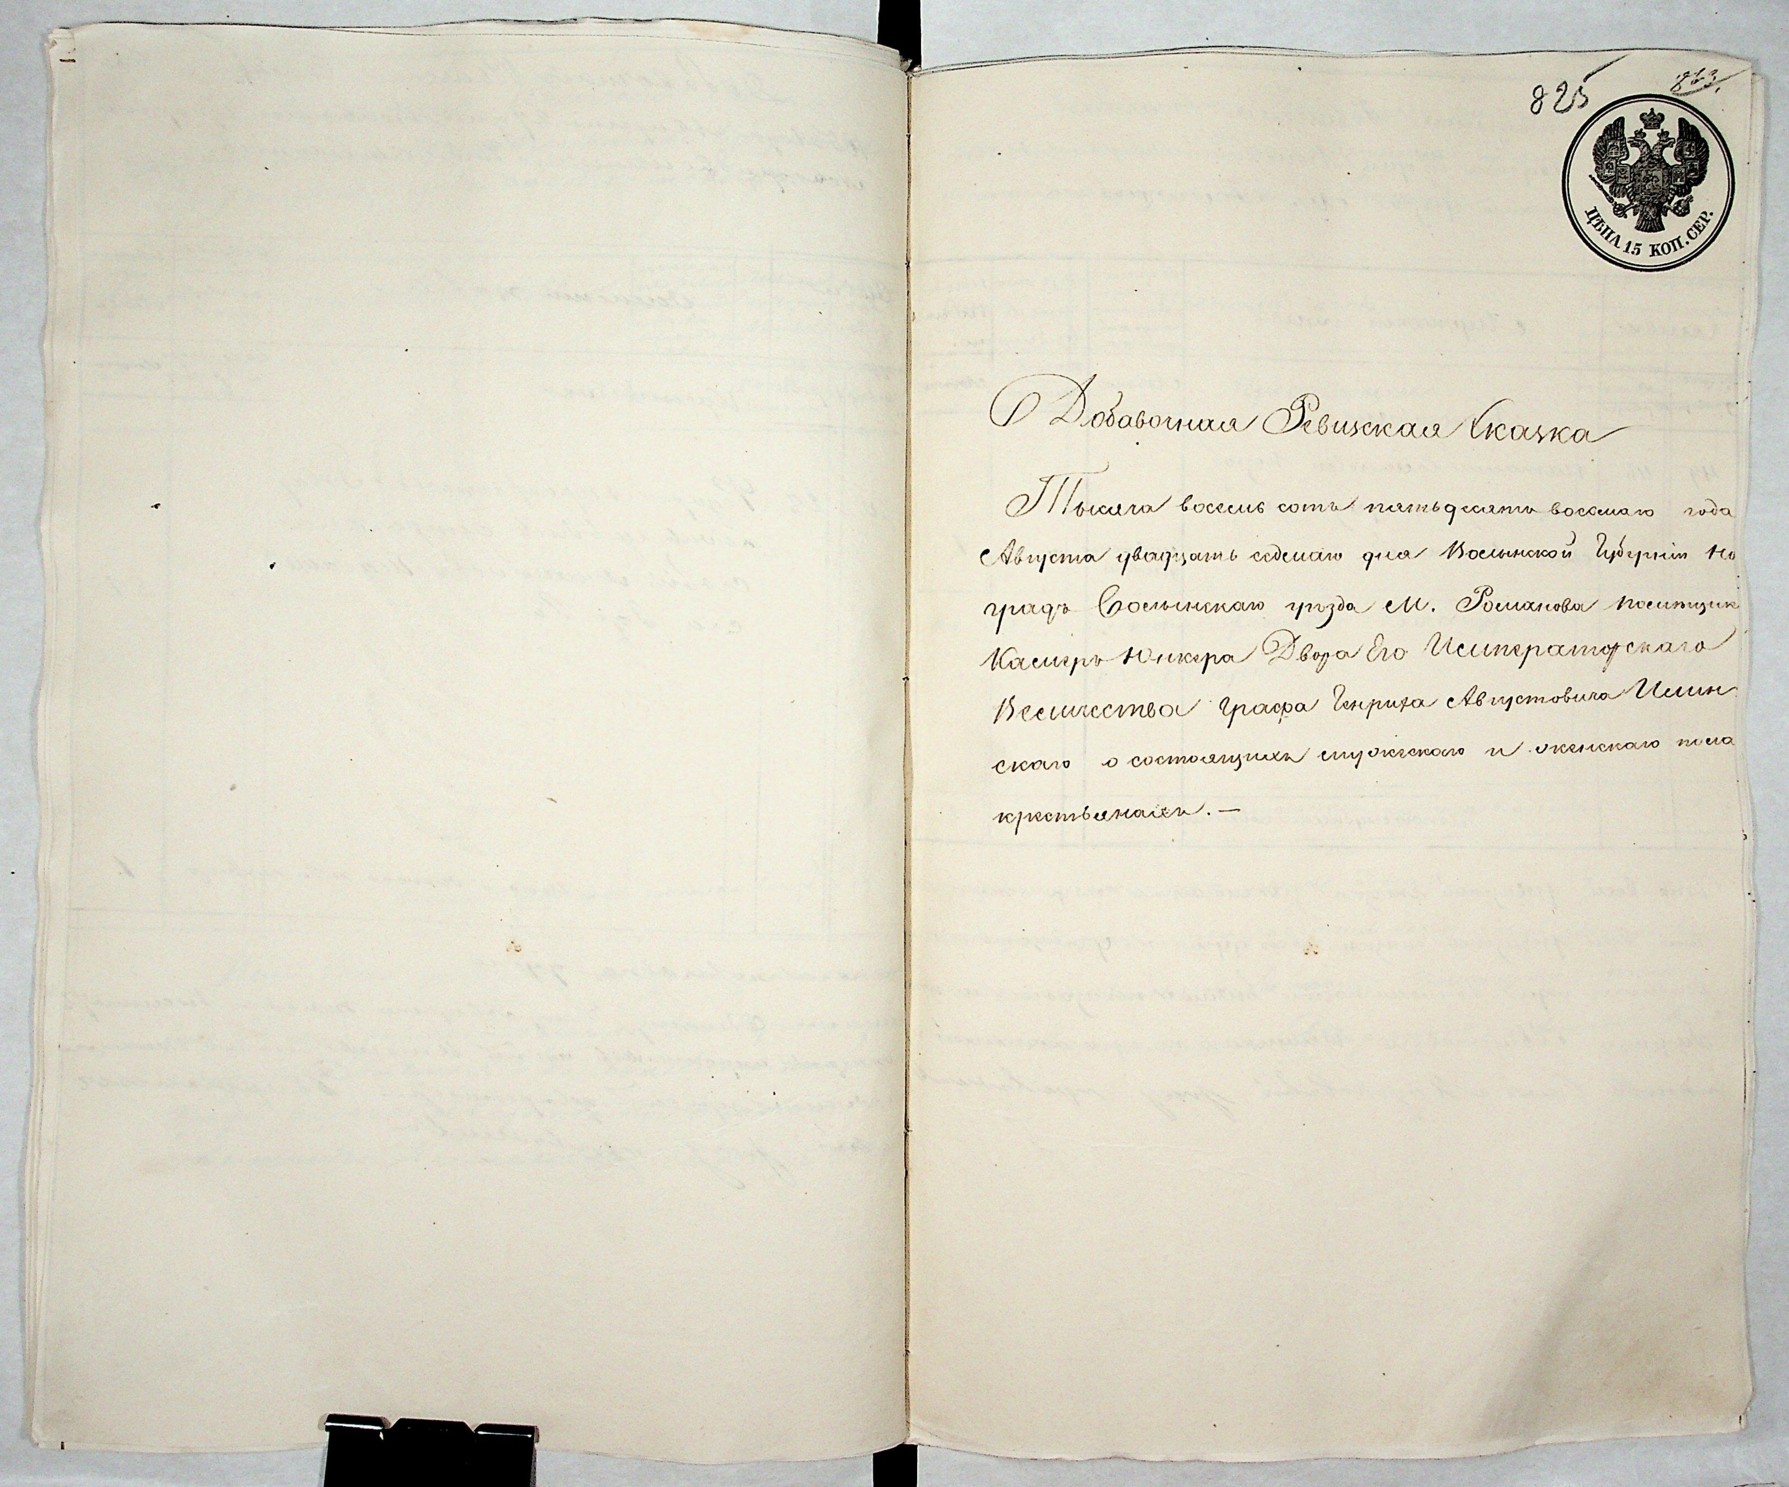 825
823.
ЦѢНА 15 КОП. СЕР.
Добавочная Ревизская Сказка
Тысяча восемь сотъ пятьдесятъ восьмаго года
Августа двадцать седьмаго дня Волынской Губерніи Но
градъ Волынскаго уѣзда М. Романова помѣщик
Камеръ Юнкера Двора Его Императорскаго
Величества Графа Генриха Августовича Илин
скаго о состоящихъ мужескаго и женскаго пола
крестьянахъ. —